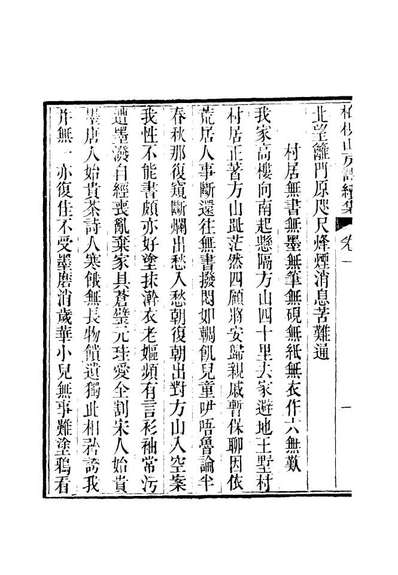 山房詩續集 卷一 一
北望離門原咫尺烽煙消息苦難通
村居無書無墨無筆無硯無紙無衣作六無歎
我家高樓向南起懸隔方山四十里去家避地王野村
村居正著方山趾茫然四顧將安歸親戚暫保聊因依
荒居人事斷還往無書撥悶如輖飢兒童吚唔魯論半
春秋那復窺斷爛出愁入愁朝復朝出對方山入空案
我性不能書頗亦好塗抹澣衣老嫗頻有言衫袖常污
遭墨潑自經喪亂棄家具蒼璧元珪愛全割宋人始貴
墨唐人始貴茶詩人寒餓無長物饋遺獨此相誇我
幷無一亦復佳不受墨磨消歲華小兒無事難塗鴉看